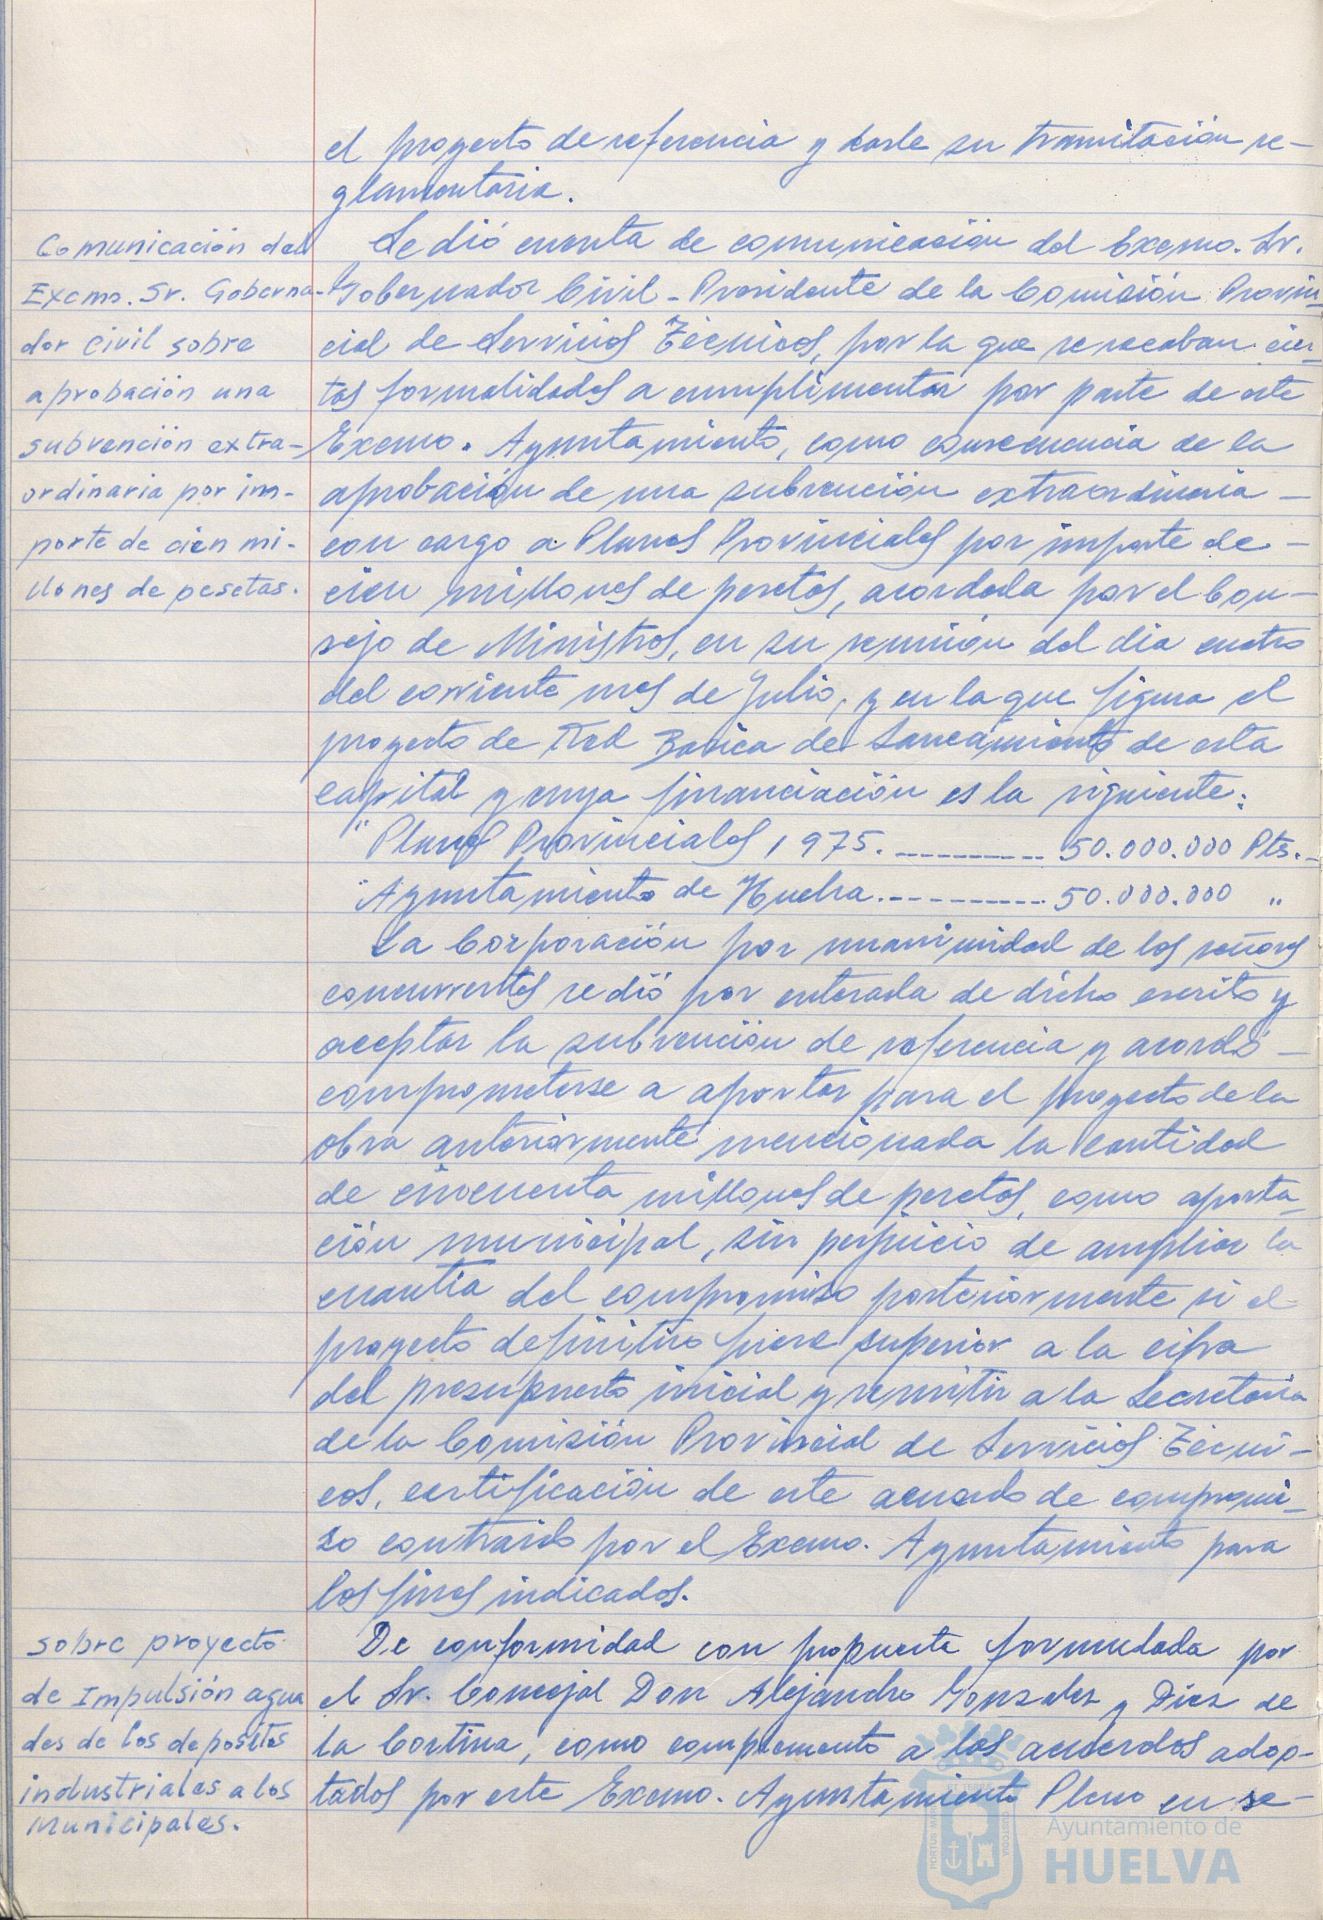 el proyecto de referencia y darle su tramitación re-
glamentaria.
Comunicación del
Excmo. Sr. Goberna-
dor civil sobre
aprobación una
subvención extra-
ordinaria por im-
porte de cien mi-
llones de pesetas.
Se dió cuenta de comunicación del Excmo. Sr.
Gobernador Civil-Presidente de la Comisión Provin-
cial de Servicios Técnicos, por la que se recaban cier-
tas formalidades a cumplimentar por parte de este
Excmo. Ayuntamiento, como consecuencia de la
aprobación de una subvención extraordinaria -
con cargo a Planes Provinciales por importe de -
cien millones de pesetas, acordada por el Con-
sejo de Ministros, en su reunión del día cuatro
del corriente mes de Julio, y en la que figura el
proyecto de Red Basica de Saneamiento de esta
capital y cuya financiación es la siguiente:
"Planes Provinciales 1975. ---------- 50.000.000 Pts.-
"Ayuntamiento de Huelva.---------- 50.000.000 "
La Corporación por unanimidad de los señores
concurrentes se dió por enterada de dicho escrito y
aceptar la subvención de referencia y acordó -
comprometerse a aportar para el proyecto de la
obra anteriormente mencionada la cantidad
de cincuenta millones de pesetas, como aporta-
ción municipal, sin perjuicio de ampliar la
cuantía del compromiso posteriormente si el
proyecto definitivo fuera superior a la cifra
del presupuesto inicial y remitir a la Secretaria
de la Comisión Provincial de Servicios Técni-
cos, certificación de este acuerdo de compromi-
so contraido por el Excmo. Ayuntamiento para
los fines indicados.
sobre proyecto
de Impulsión agua
des de los depositos
industriales a los
municipales.
De conformidad con propuesta formulada por
el Sr. Concejal Don Alejandro Gonzalez y Diez de
la Cortina, como complemento a los acuerdos adop-
tados por este Excmo. Ayuntamiento Pleno en se-
Ayuntamiento de
HUELVA